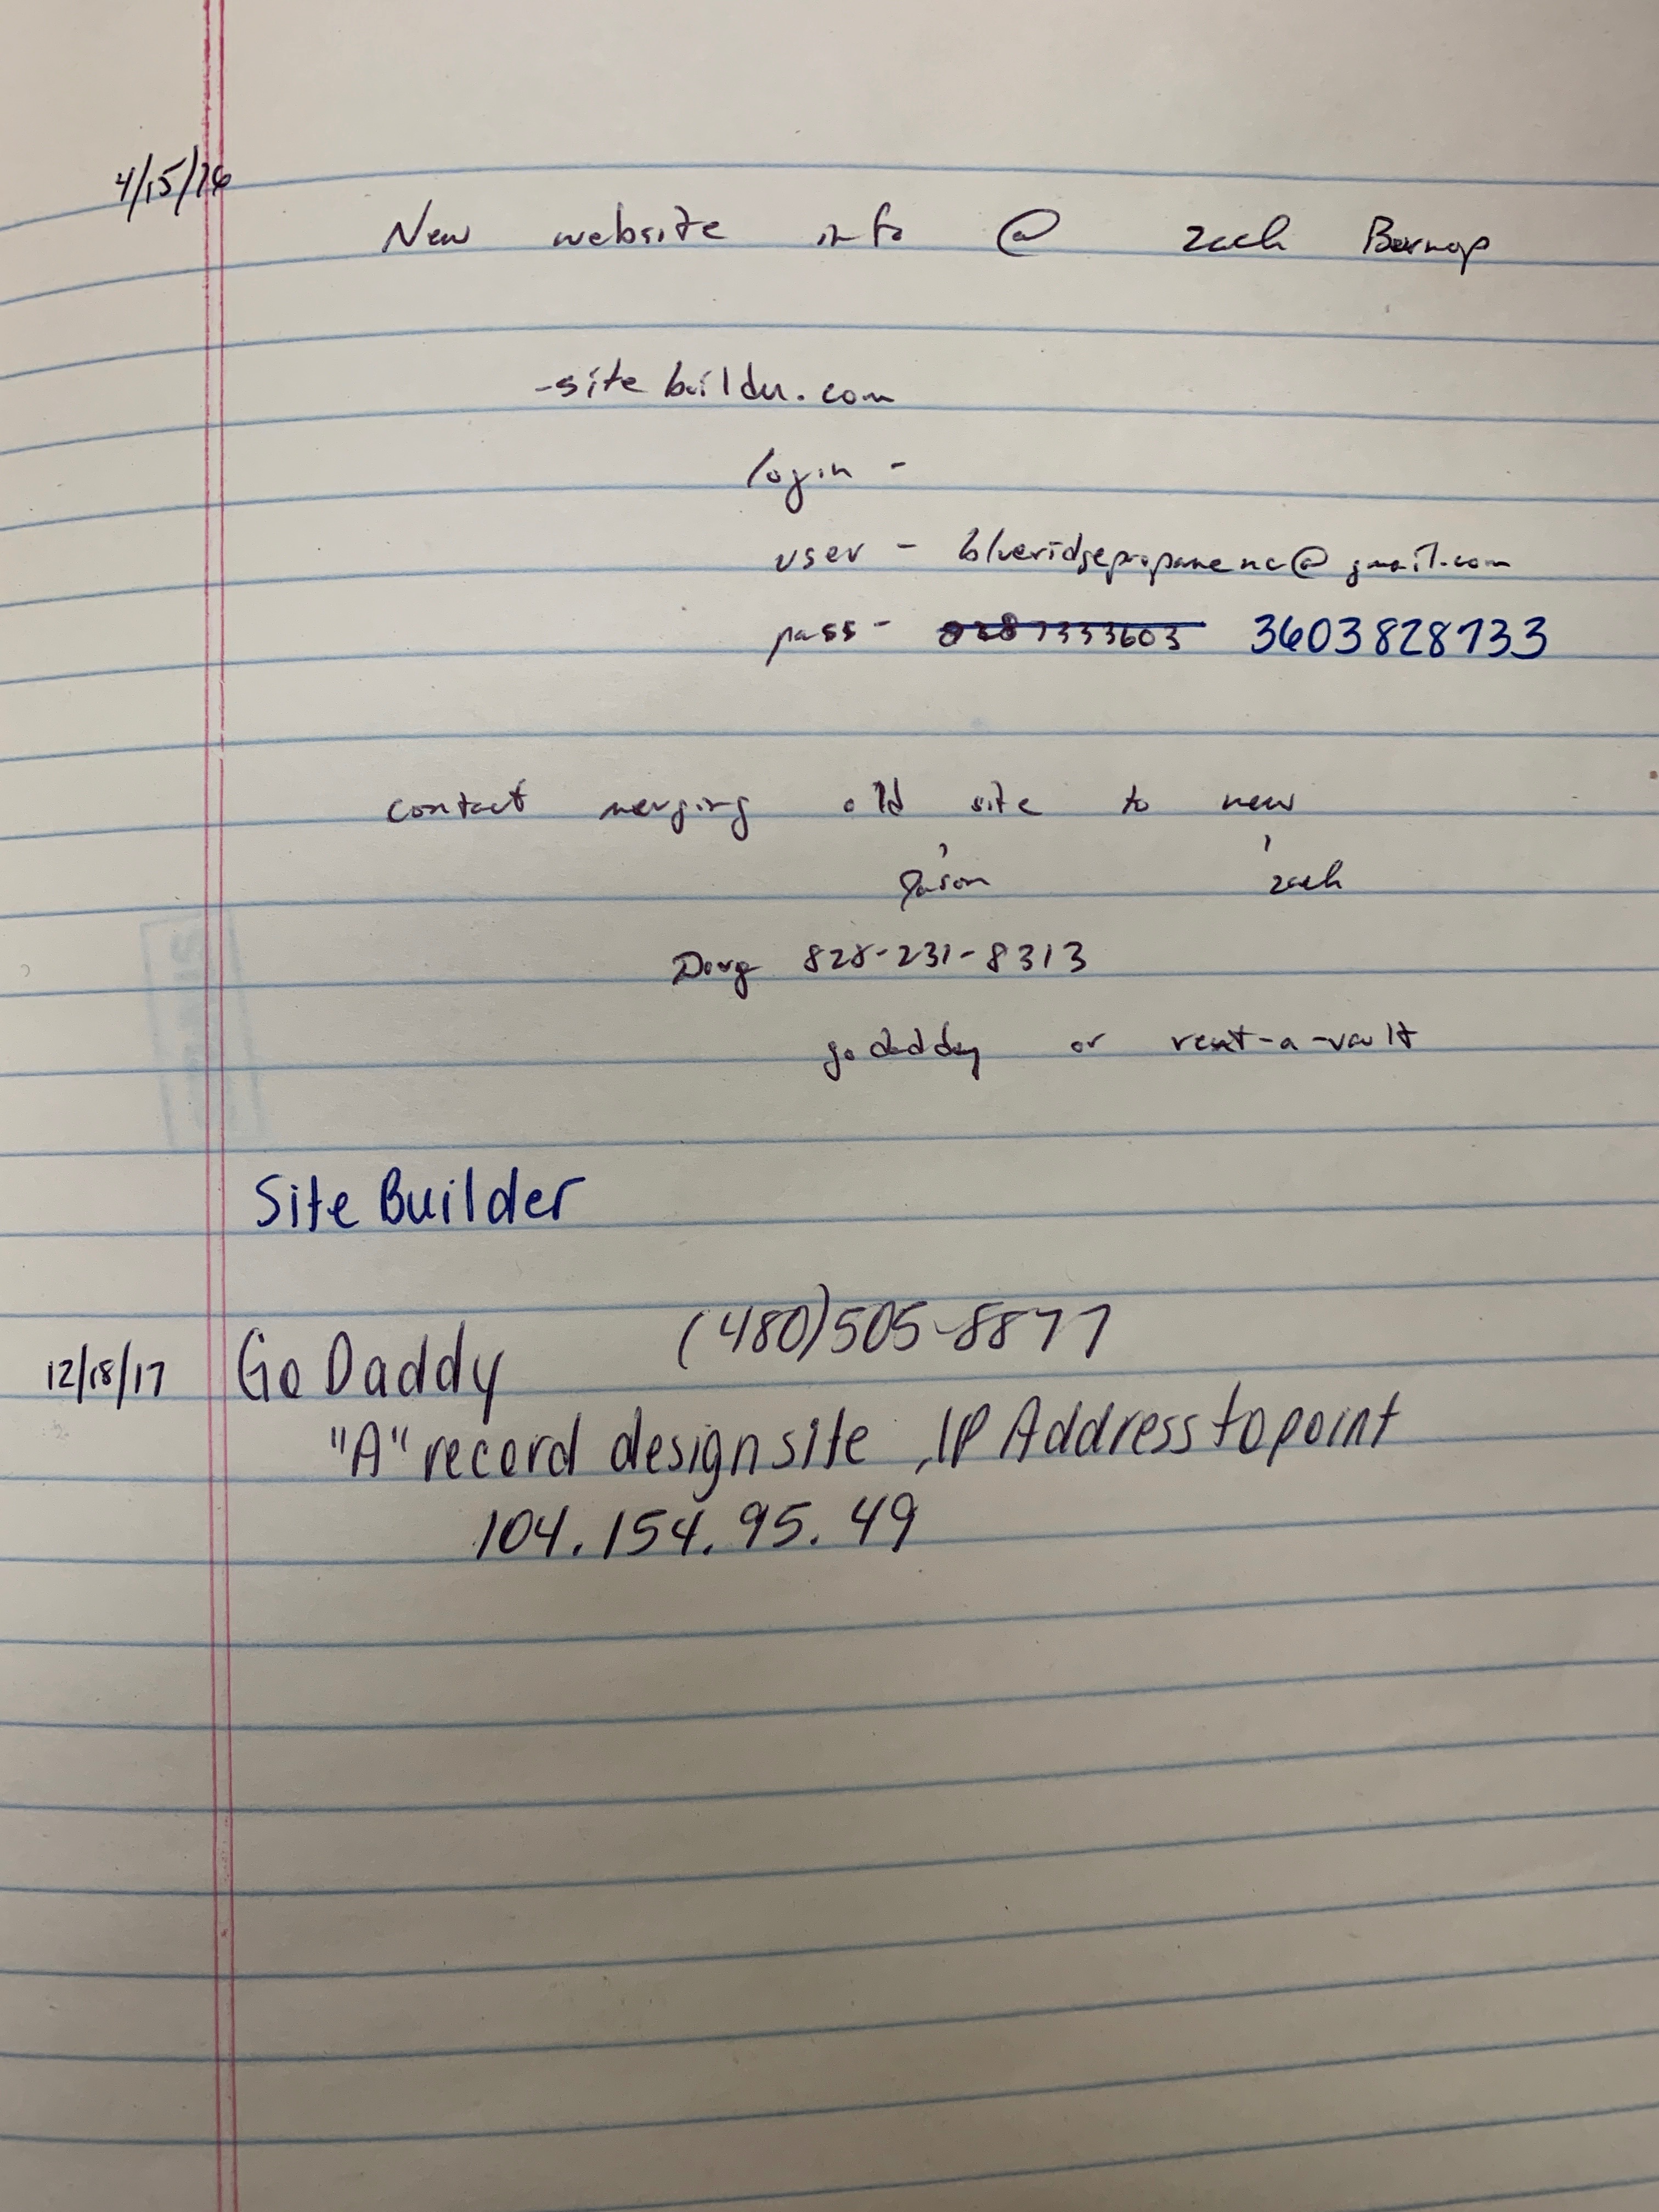 4/15/16
New website info @ zach
-sitebuilder.com
login -
user - blueridgepropanenc@gmail.com
pass- 8287333603 3603828733
contact merging old site to new
Jason zach
Doug 828-231-8313
godaddy or rent-a-vault
Site Builder
(480)505-8877
12/18/17 Go Daddy
"A" record design site, IP Address to point
104.154.95.49